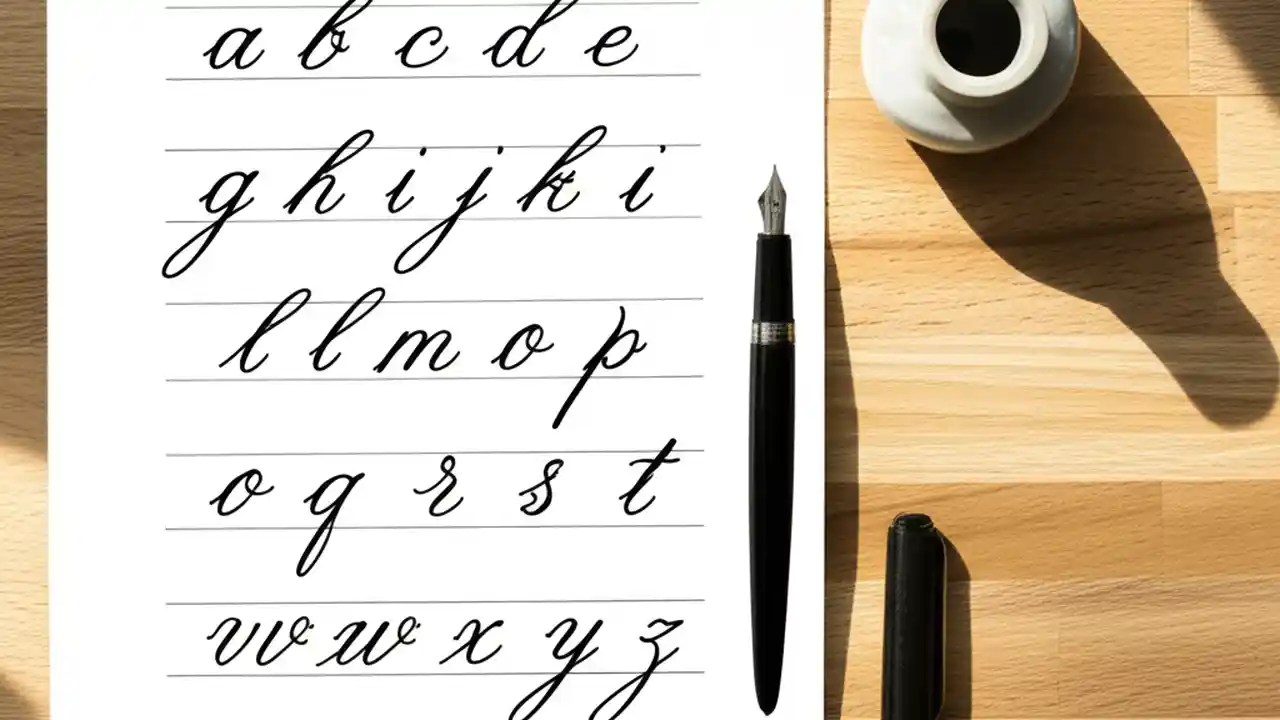 a b c d e
g h i j k i
l l m o p
o q r s t
w w x y z